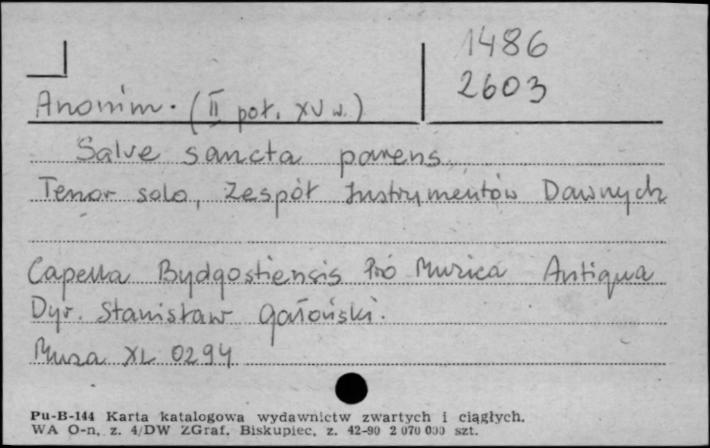 1486
2603
Anonim. (II poł. XV w.)
Salve sancta parens
Tenor solo, Zespół Instrumentów Dawnych
Capella Bydgostiensis Pro Musica Antiqua
Dyr. Stanisław Gałoński.
Muza XL 0294
Pu-B-144 Karta katalogowa wydawnictw zwartych i ciągłych.
WA O-n, z. 4/DW ZGraf. Biskupiec, z. 42-90 2 070 000 szt.